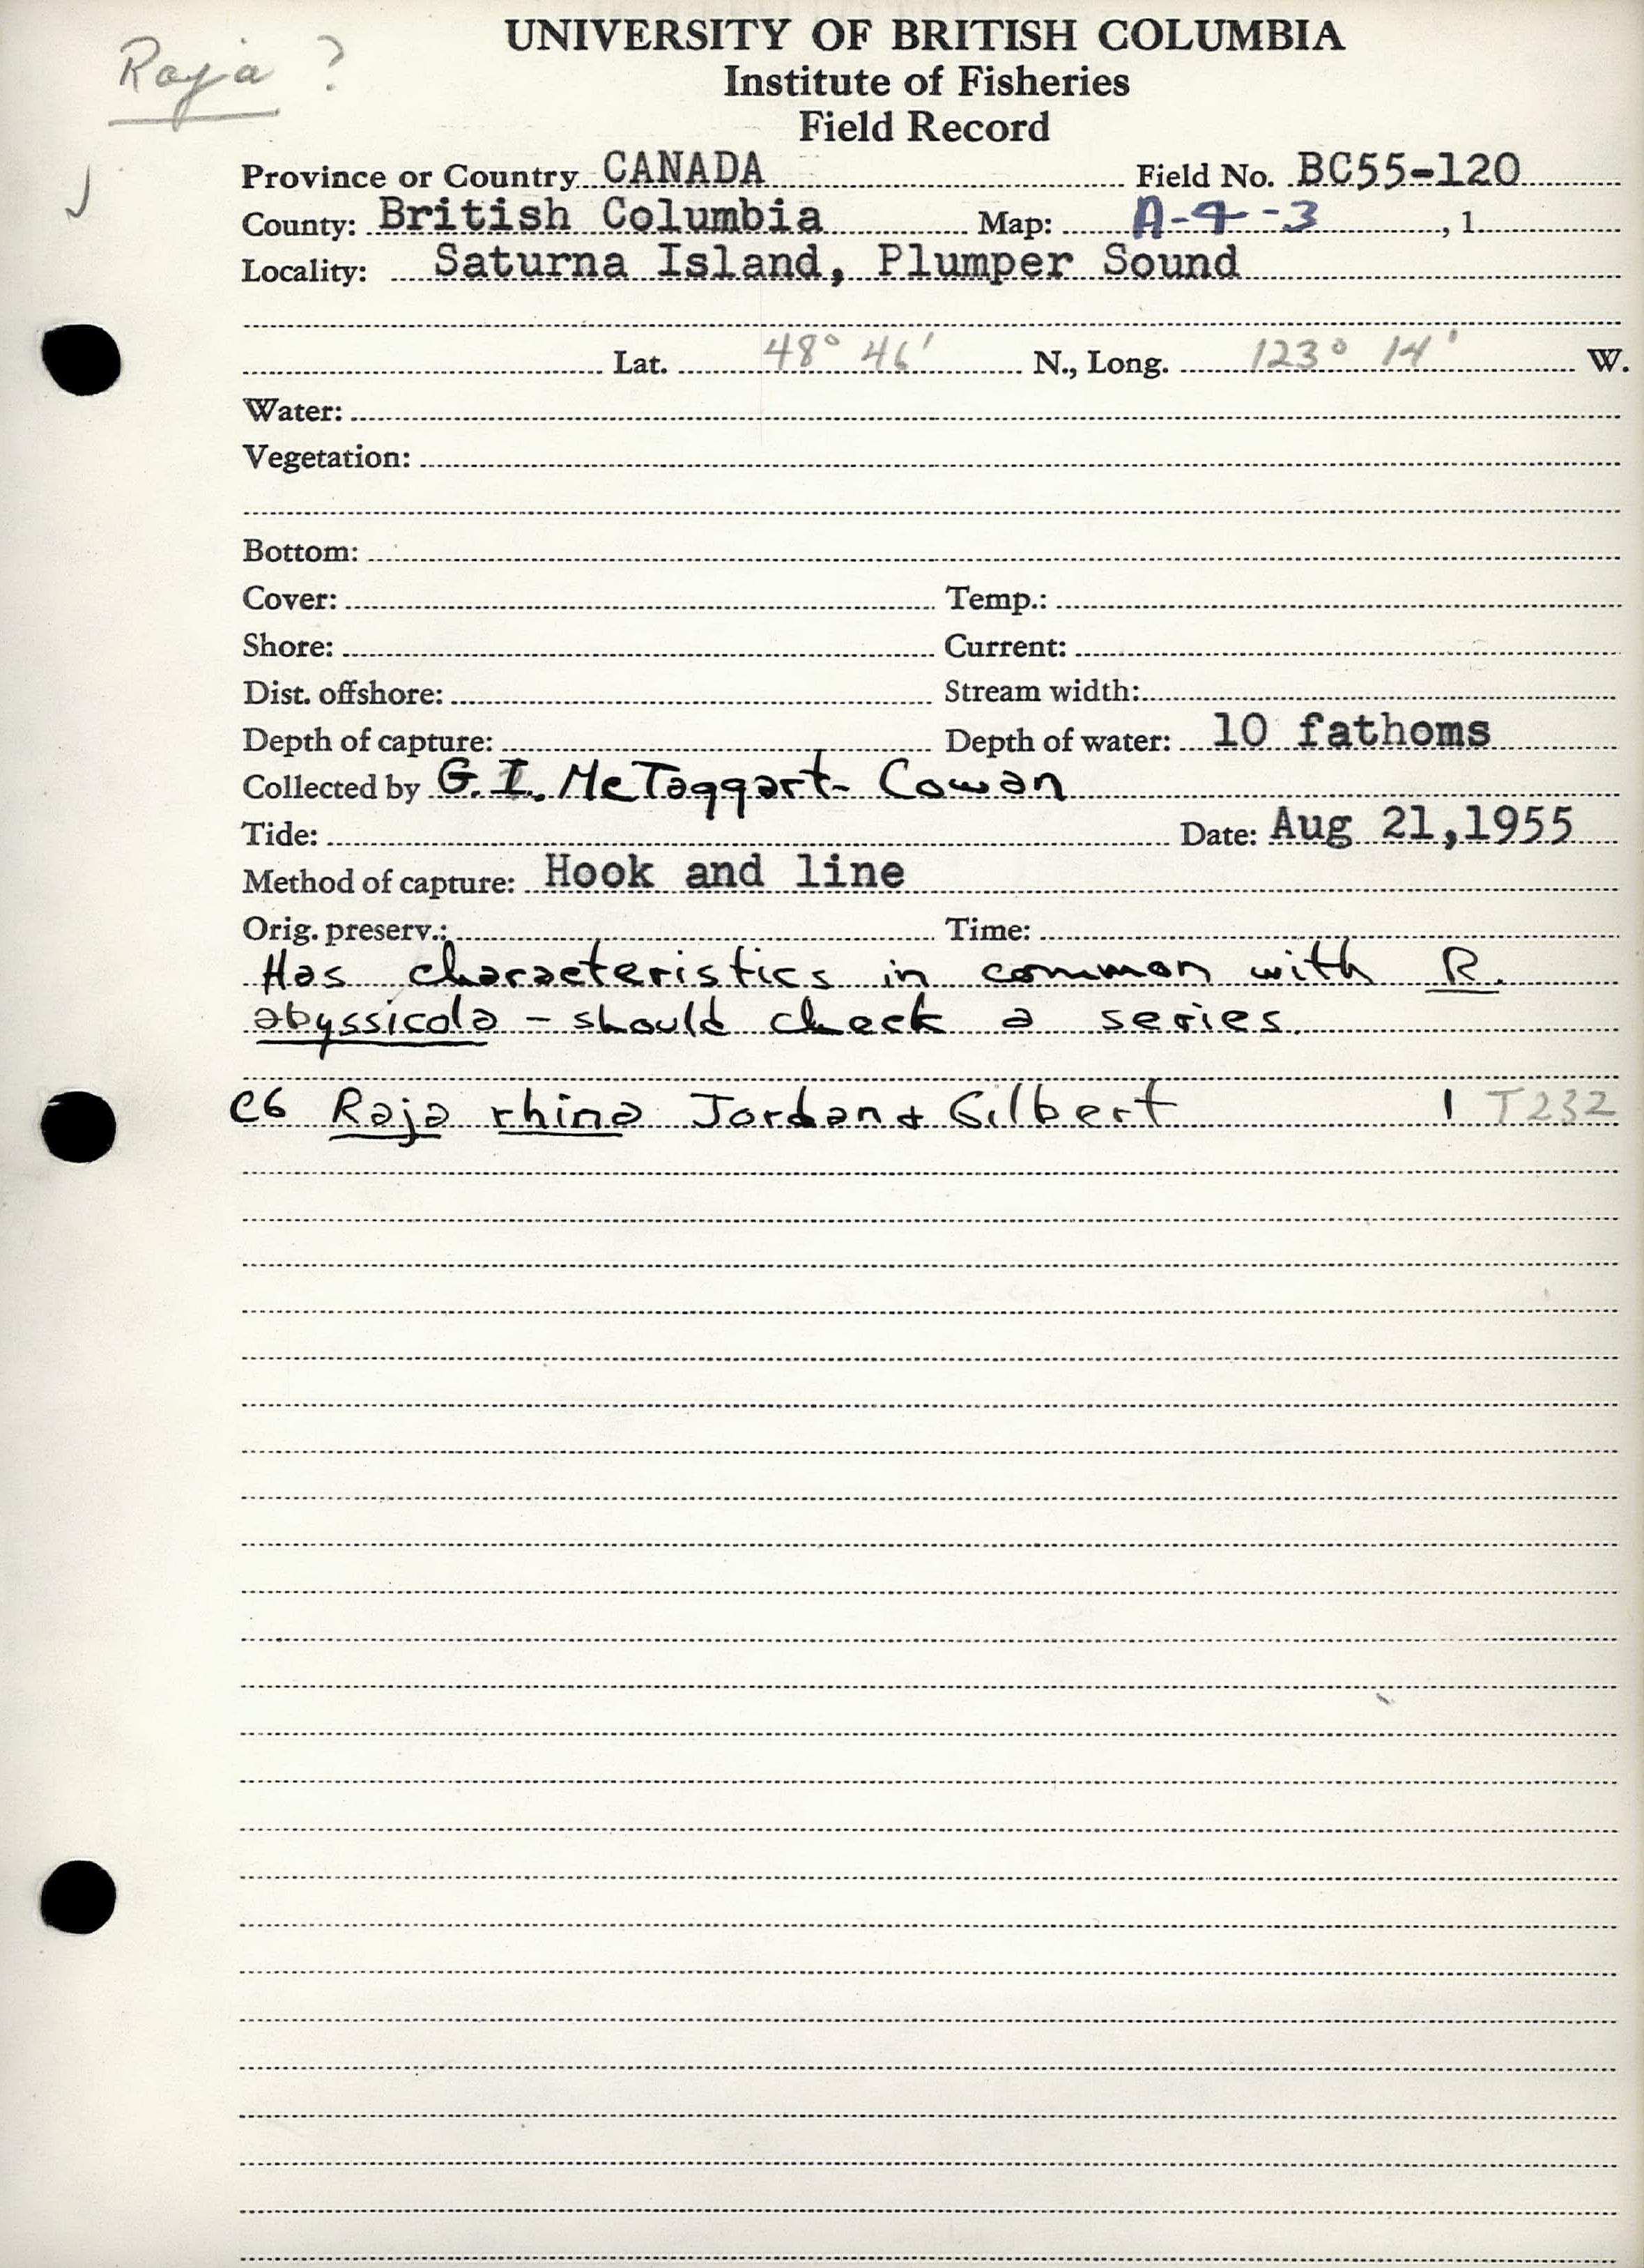 Raja ?
UNIVERSITY OF BRITISH COLUMBIA
Institute of Fisheries
Field Record
Province or Country CANADA Field No. BC55-120
County: British Columbia Map: A-4-3, 1
Locality: Saturna Island, Plumper Sound
Lat. 48° 46' N., Long. 123° 14' W.
Water:
Vegetation:
Bottom:
Cover: Temp.:
Shore: Current:
Dist. offshore: Stream width:
Depth of capture: Depth of water: 10 fathoms
Collected by G. I. McTaggart-Cowan
Tide: Date: Aug 21,1955
Method of capture: Hook and line
Orig. preserv.: Time:
Has characteristics in common with R.
abyssicola - should check a series.
C6 Raja rhina Jordan + Gilbert 1 T232